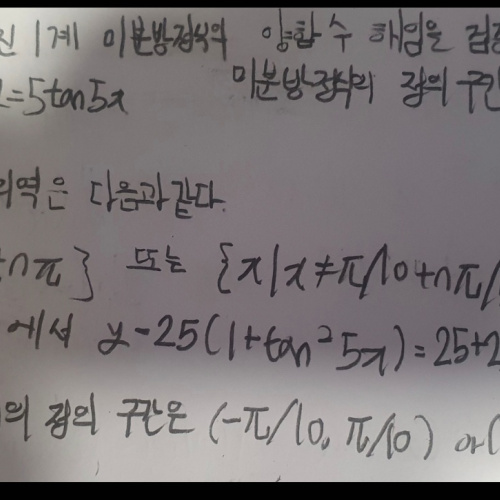 진 1계 미분방정식의 양함수 해임을 검
=5tan5x 미분방정식의 정의 구간
역은 다음과 같다.
nπ} 또는 {x|x≠π/10+nπ/
에서 y-25(1+tan²5x)=25+2
의 정의 구간은 (-π/10, π/10)